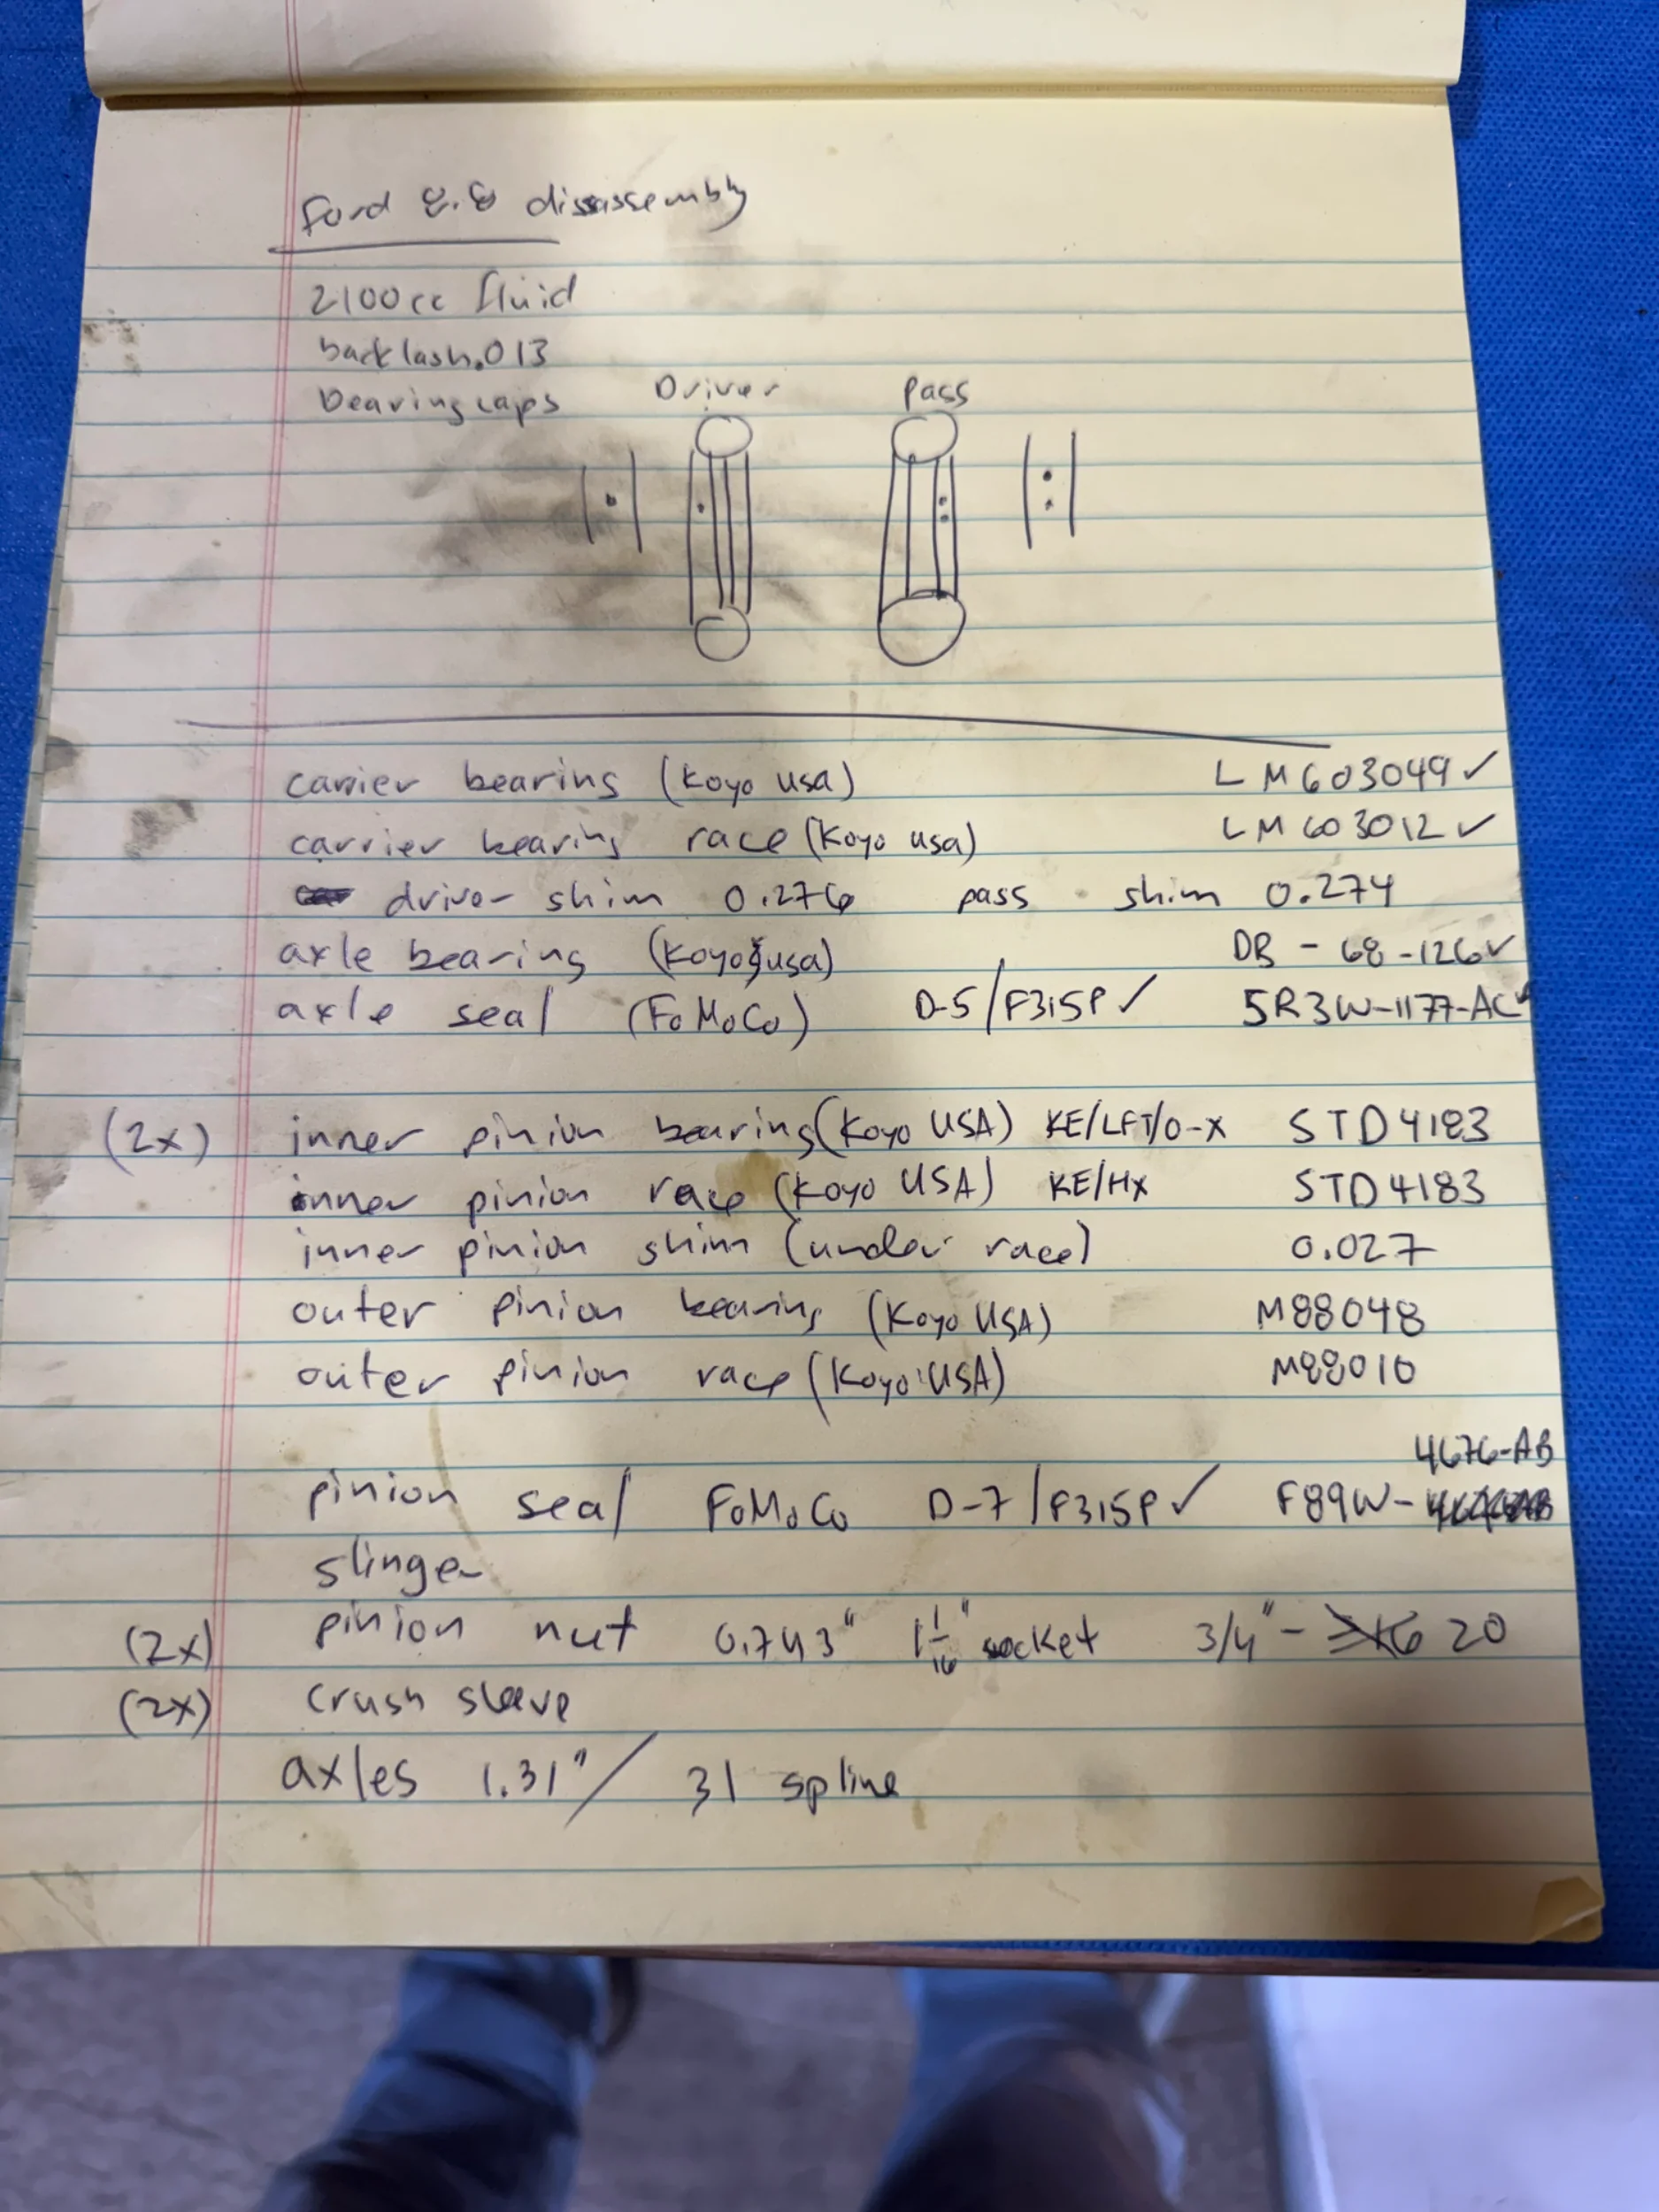 Ford 8.8 disassembly
2100cc fluid
backlash .013
bearing caps Driver Pass
carrier bearing (Koyo usa) LM603049 ✓
carrier bearing race (Koyo usa) LM603012 ✓
driver shim 0.276 pass shim 0.274
axle bearing (Koyo usa) DB-68-126 ✓
axle seal (FoMoCo) D-5/F315P ✓ 5R3W-1177-AC ✓
(2x) inner pinion bearing (Koyo USA) KE/LFT/O-X STD4183
inner pinion race (Koyo USA) KE/HX STD4183
inner pinion shim (under race) 0.027
outer pinion bearing (Koyo USA) M88048
outer pinion race (Koyo USA) M88010
4676-AB
pinion seal FoMoCo D-7/F315P ✓ F89W-
slinger
(2x) pinion nut 0.743" 1 1/16" socket 3/4"- 20
(2x) crush sleeve
axles 1.31" / 31 spline